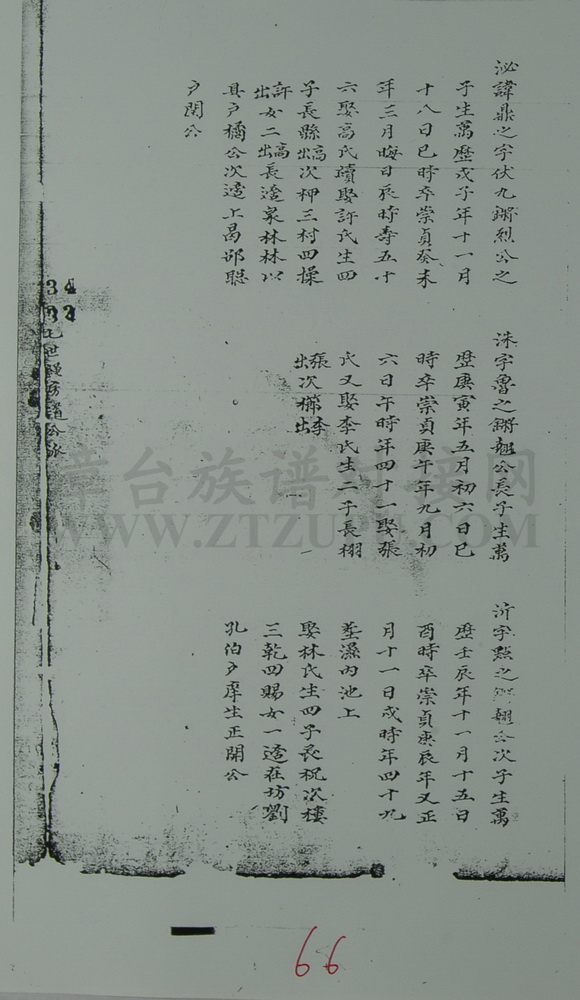 泌諱鼎之字伏九鏘烈公之
子生萬歷戊子年十一月
十八日巳時卒崇貞癸未
年三月晦日辰時壽五十
六娶高氏續娶許氏生四
子長縣出高次柙三村四操
出許女二出高長適泉林林以
具户橘公次適上曷邨聡
户閔公
洙字魯之鏘翹公長子生萬
歷庚寅年五月初六日巳
時卒崇貞庚午年九月初
六日午時年四十一娶張
氏又娶李氏生二子長栩
出張次櫛出李
沂字點之鏘翹公次子生萬
歷壬辰年十一月十五日
酉時卒崇貞庚辰年又正
月十一日戌時年四十九
塟濕內池上
娶林氏生四子長祝次樓
三乾四賜女一適在坊劉
孔伯户庠生正開公
34
32
章台族谱
网
WWW.ZTZUPU.COM
66